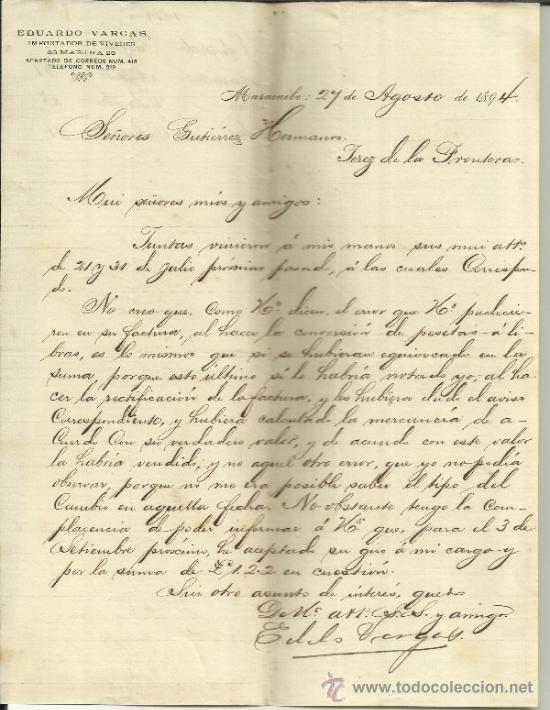 EDUARDO VARGAS
IMPORTADOR DE VIVERES
23 MARINA 23
APARTADO DE CORREOS NUM. 418
TELEFONO NUM. 219
Maracaibo: 27 de Agosto de 1894.
Señores Gutiérrez Hermanos.
Jerez de la Frontera.
Mui señores mios y amigos:
Juntas vinieron á mis manos sus mui atts.
de 21 y 31 de Julio próximo pasado, á las cuales Correspon-
do.
No creo que, Como Vs. dicen, el error que Vs. padecie-
ron en su factura, al hacer la conversión de pesetas á li-
bras, es lo mismo que si se hubieran equivocado en la
suma, porque esto último sí lo habría notado yo, al ha-
cer la rectificación de la factura, y les hubiera dado el aviso
Correspondiente, y hubiera calculado la mercancía de a-
cuerdo Con su verdadero valor, y de acuerdo con este valor
la habría vendido, y no aquel otro error, que yo no podía
observar, porque no me era posible saber el tipo del
Cambio en aquella fecha. No obstante tengo la Com-
placencia de poder informar á Vs. que, para el 3 de
Setiembre próximo, he aceptado su giro á mi cargo y
por la suma de £ 1.2.2 en cuestión.
Sin otro asunto de interés, quedo
De Vs. att. S.S. y amigo
Eddo Vargas.
todocoleccion
www.todocoleccion.net